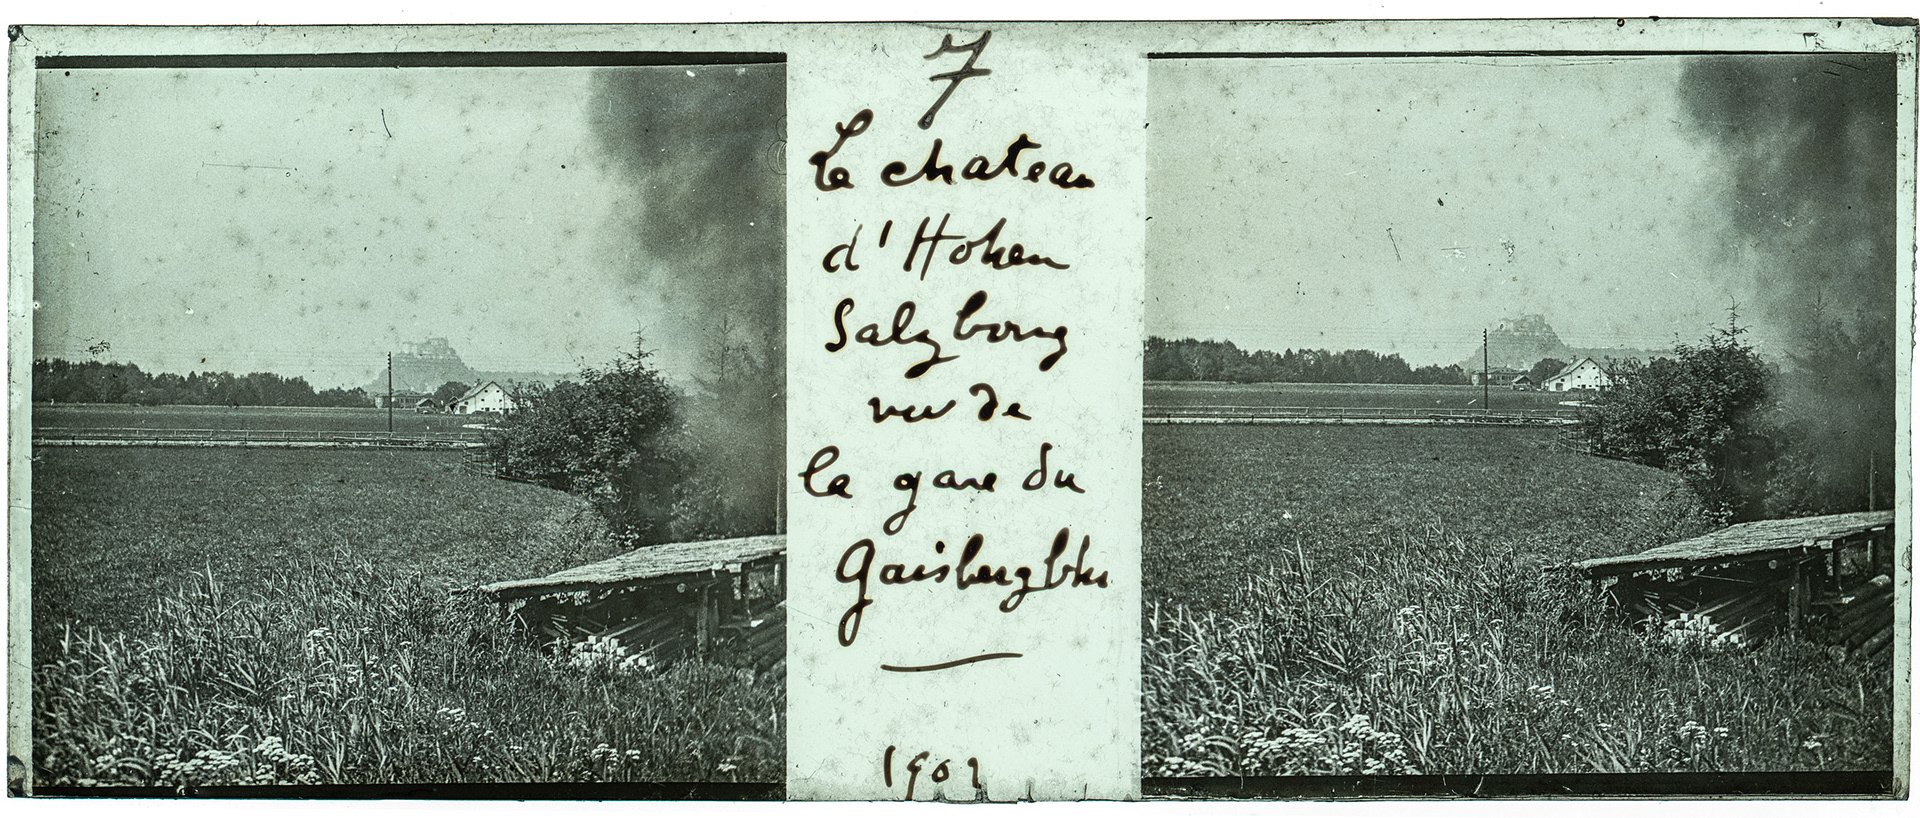 7
Le chateau
d'Hohen
Salzbourg
vu de
la gare du
Gaisbergbhn
1902